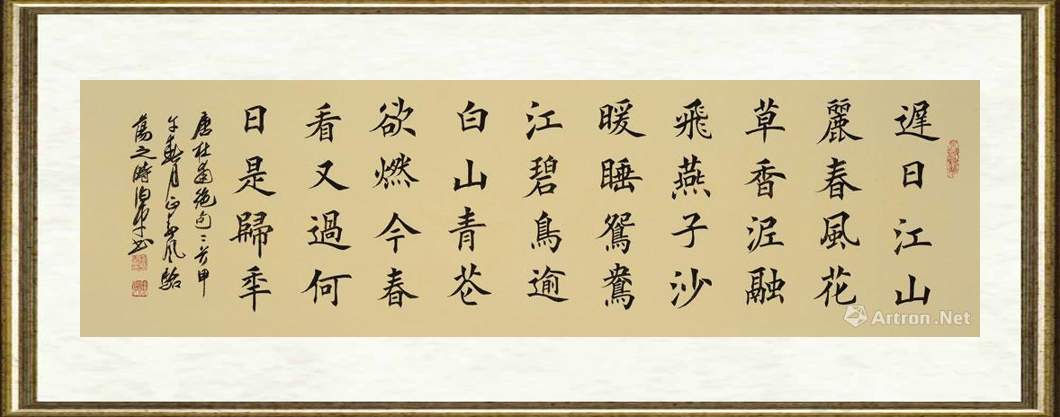 遲日江山
麗春風花
草香泥融
飛燕子沙
暖睡鴛鴦
江碧鳥逾
白山青花
欲燃今春
看又過何
日是歸年
唐杜甫絕句二首甲
午春月正春風駘
蕩之時
Artron.Net